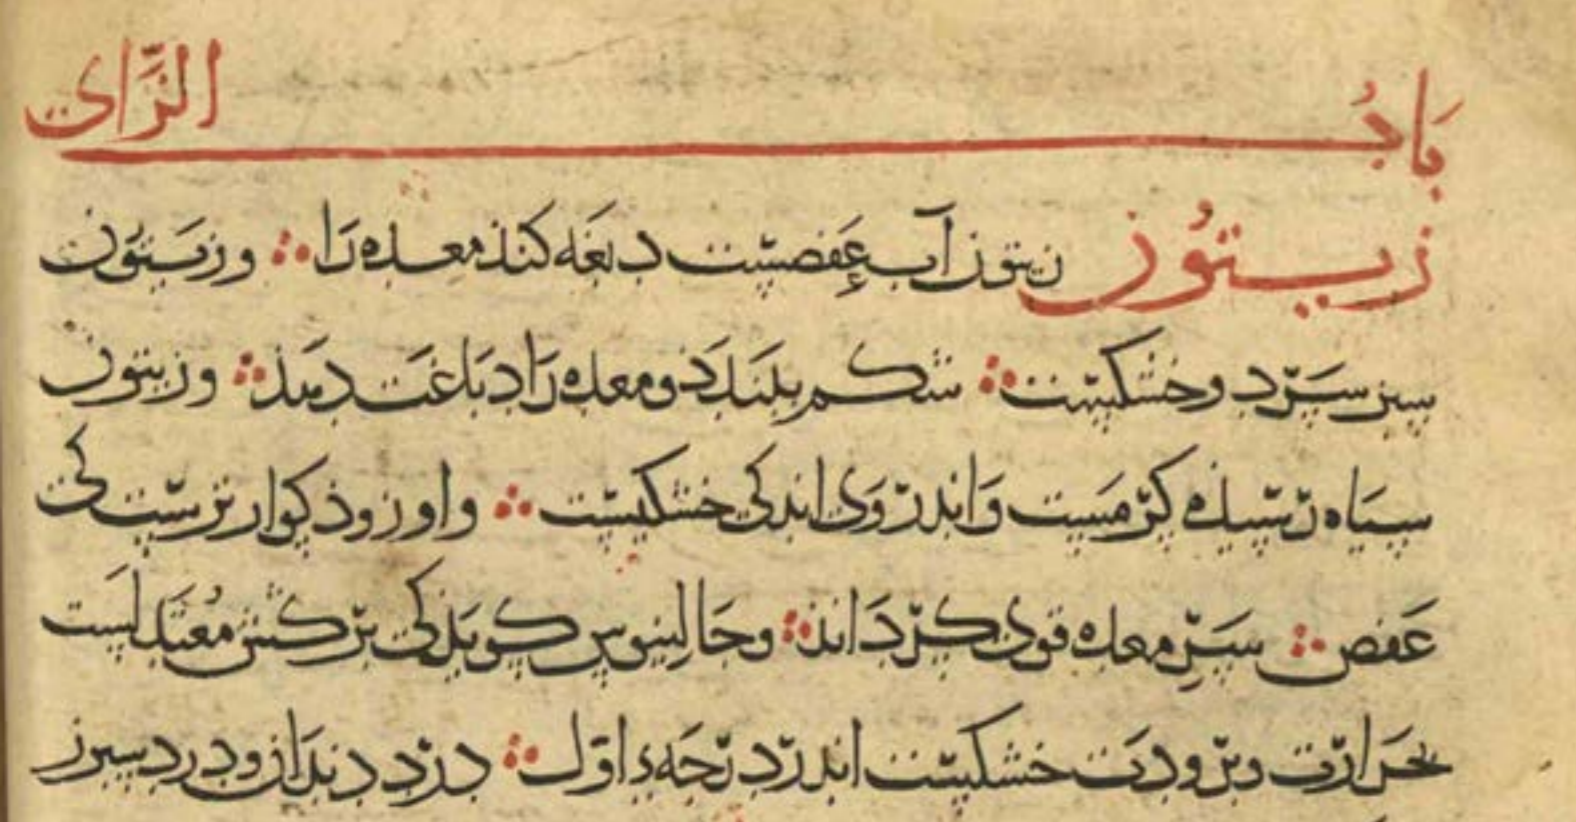 باب الزّای
زیتون زیتون آب عفصست دبغه کند معده را ؞ و زیتون
سبز سرد و خشکیست ؞ شکم ببندد و معده را دباغت دهد ؞ و زیتون
سیاه رسیده کرمست و اندر وی اندکی خشکیست ؞ و او زوذ کوارترست کی
عفص ؞ سر معده قوی کرداند ؞ و جالینوس کوید کی برکش معتدلست
بحرارت و برودت خشکیست اندر درجهٔ اوّل ؞ درد دندان و درد سپرز